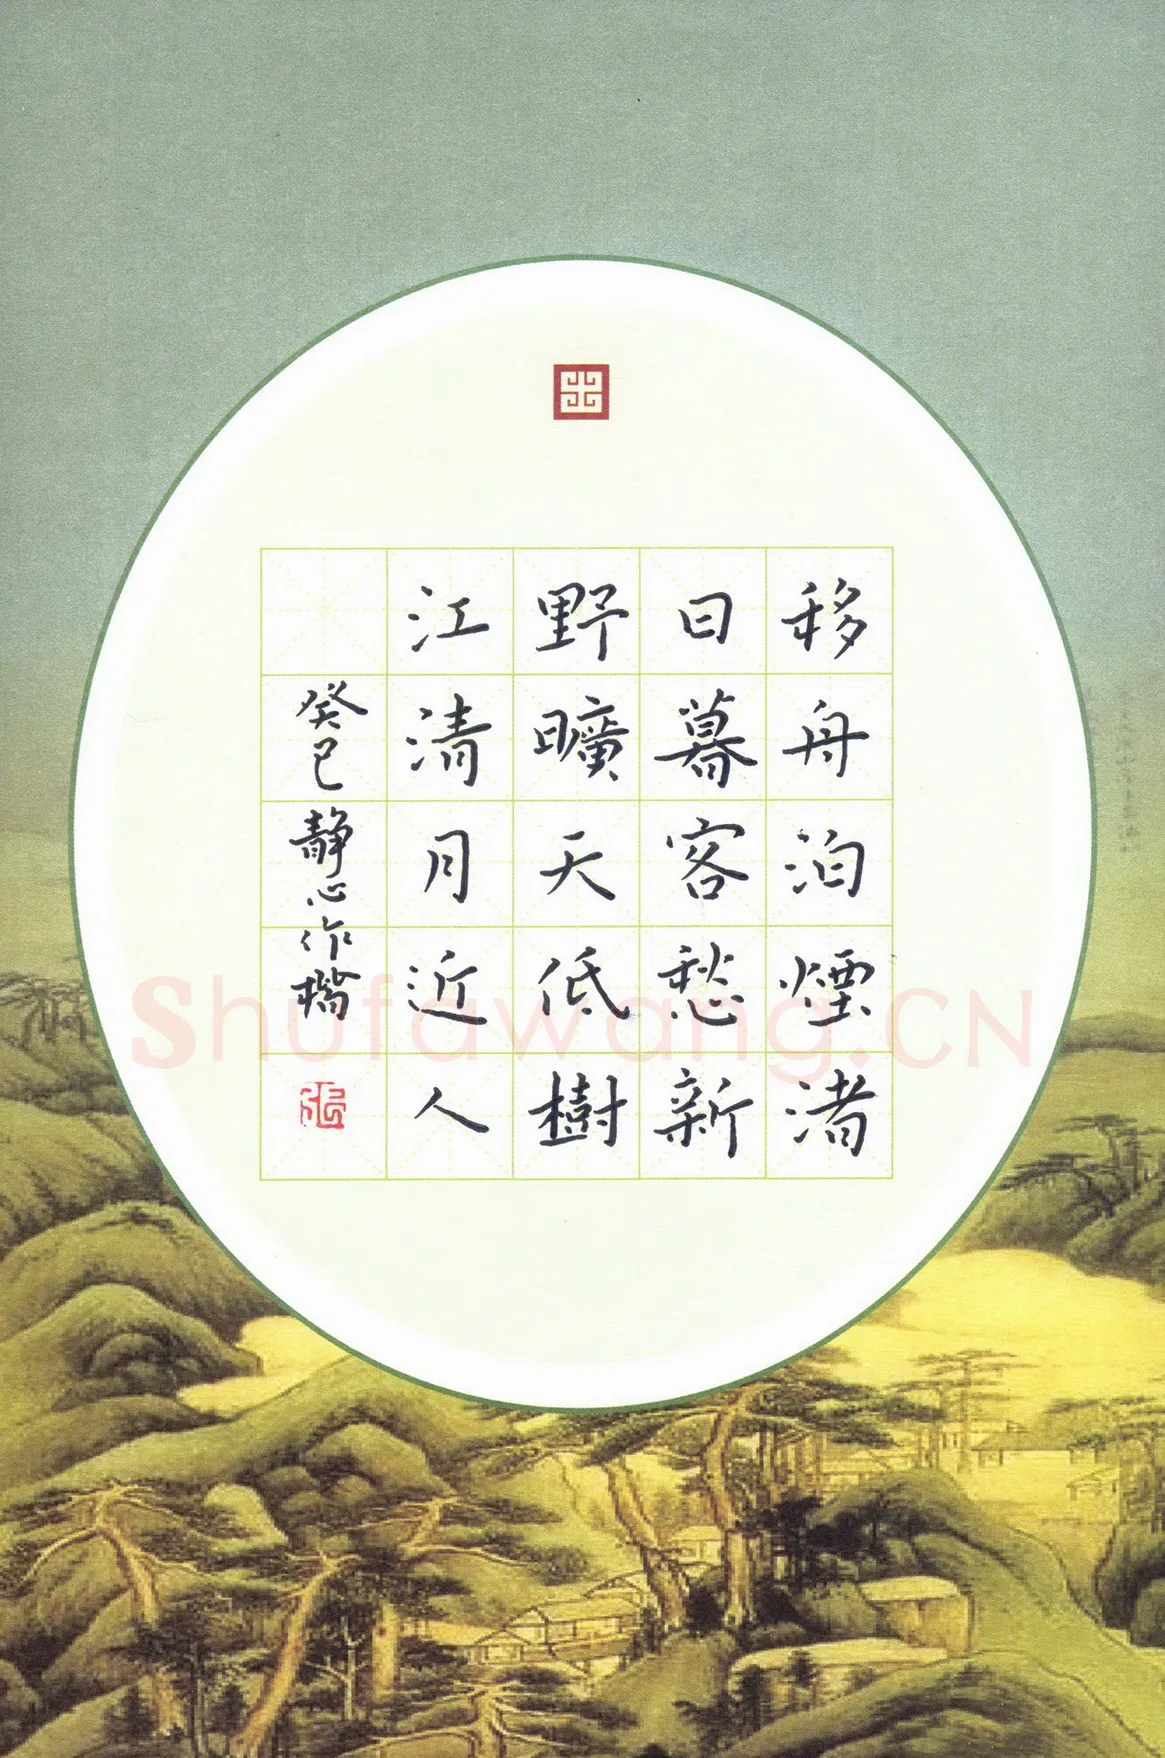 移舟泊煙渚
日暮客愁新
野曠天低樹
江清月近人
癸巳靜心作橋
Shufawang.CN